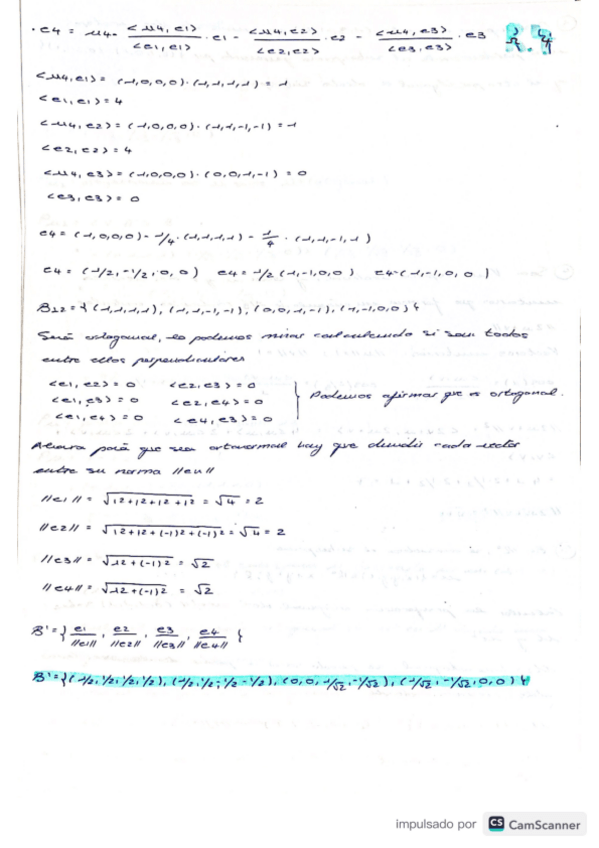 · e4 = u4 - <u4, e1>/<e1, e1> · e1 - <u4, e2>/<e2, e2> · e2 - <u4, e3>/<e3, e3> · e3
<u4, e1> = (1,0,0,0) · (1,1,1,1) = 1
<e1, e1> = 4
<u4, e2> = (1,0,0,0) · (1,1,-1,-1) = 1
<e2, e2> = 4
<u4, e3> = (1,0,0,0) · (0,0,1,-1) = 0
<e3, e3> = 0
e4 = (1,0,0,0) - 1/4 · (1,1,1,1) - 1/4 · (1,1,-1,1)
e4 = (1/2, -1/2, 0, 0) e4 = 1/2 (1,-1,0,0) e4 (1,-1,0,0)
= {(1,1,1,1), (1,1,-1,-1), (0,0,1,-1), (1,-1,0,0)}
Será ortogonal, lo podemos mirar calculando si son todos
entre ellos perpendiculares
<e1, e2> = 0 <e2, e3> = 0
<e1, e3> = 0 <e2, e4> = 0 } Podemos afirmar que es ortogonal.
<e1, e4> = 0 <e4, e3> = 0
Ahora para que sea ortonormal hay que dividir cada vector
entre su norma //eu//
//e1// = √12+12+12+12 = √4 = 2
//e2// = √12+12+(-1)2+(-1)2 = √4 = 2
//e3// = √12+(-1)2 = √2
//e4// = √12+(-1)2 = √2
B' = { e1/||e1||, e2/||e2||, e3/||e3||, e4/||e4|| }
B' = {(1/2, 1/2, 1/2, 1/2), (1/2, 1/2, 1/2 - 1/2), (0, 0, 1/√2, -1/√2), (1/√2, -1/√2, 0, 0)}
impulsado por CS CamScanner